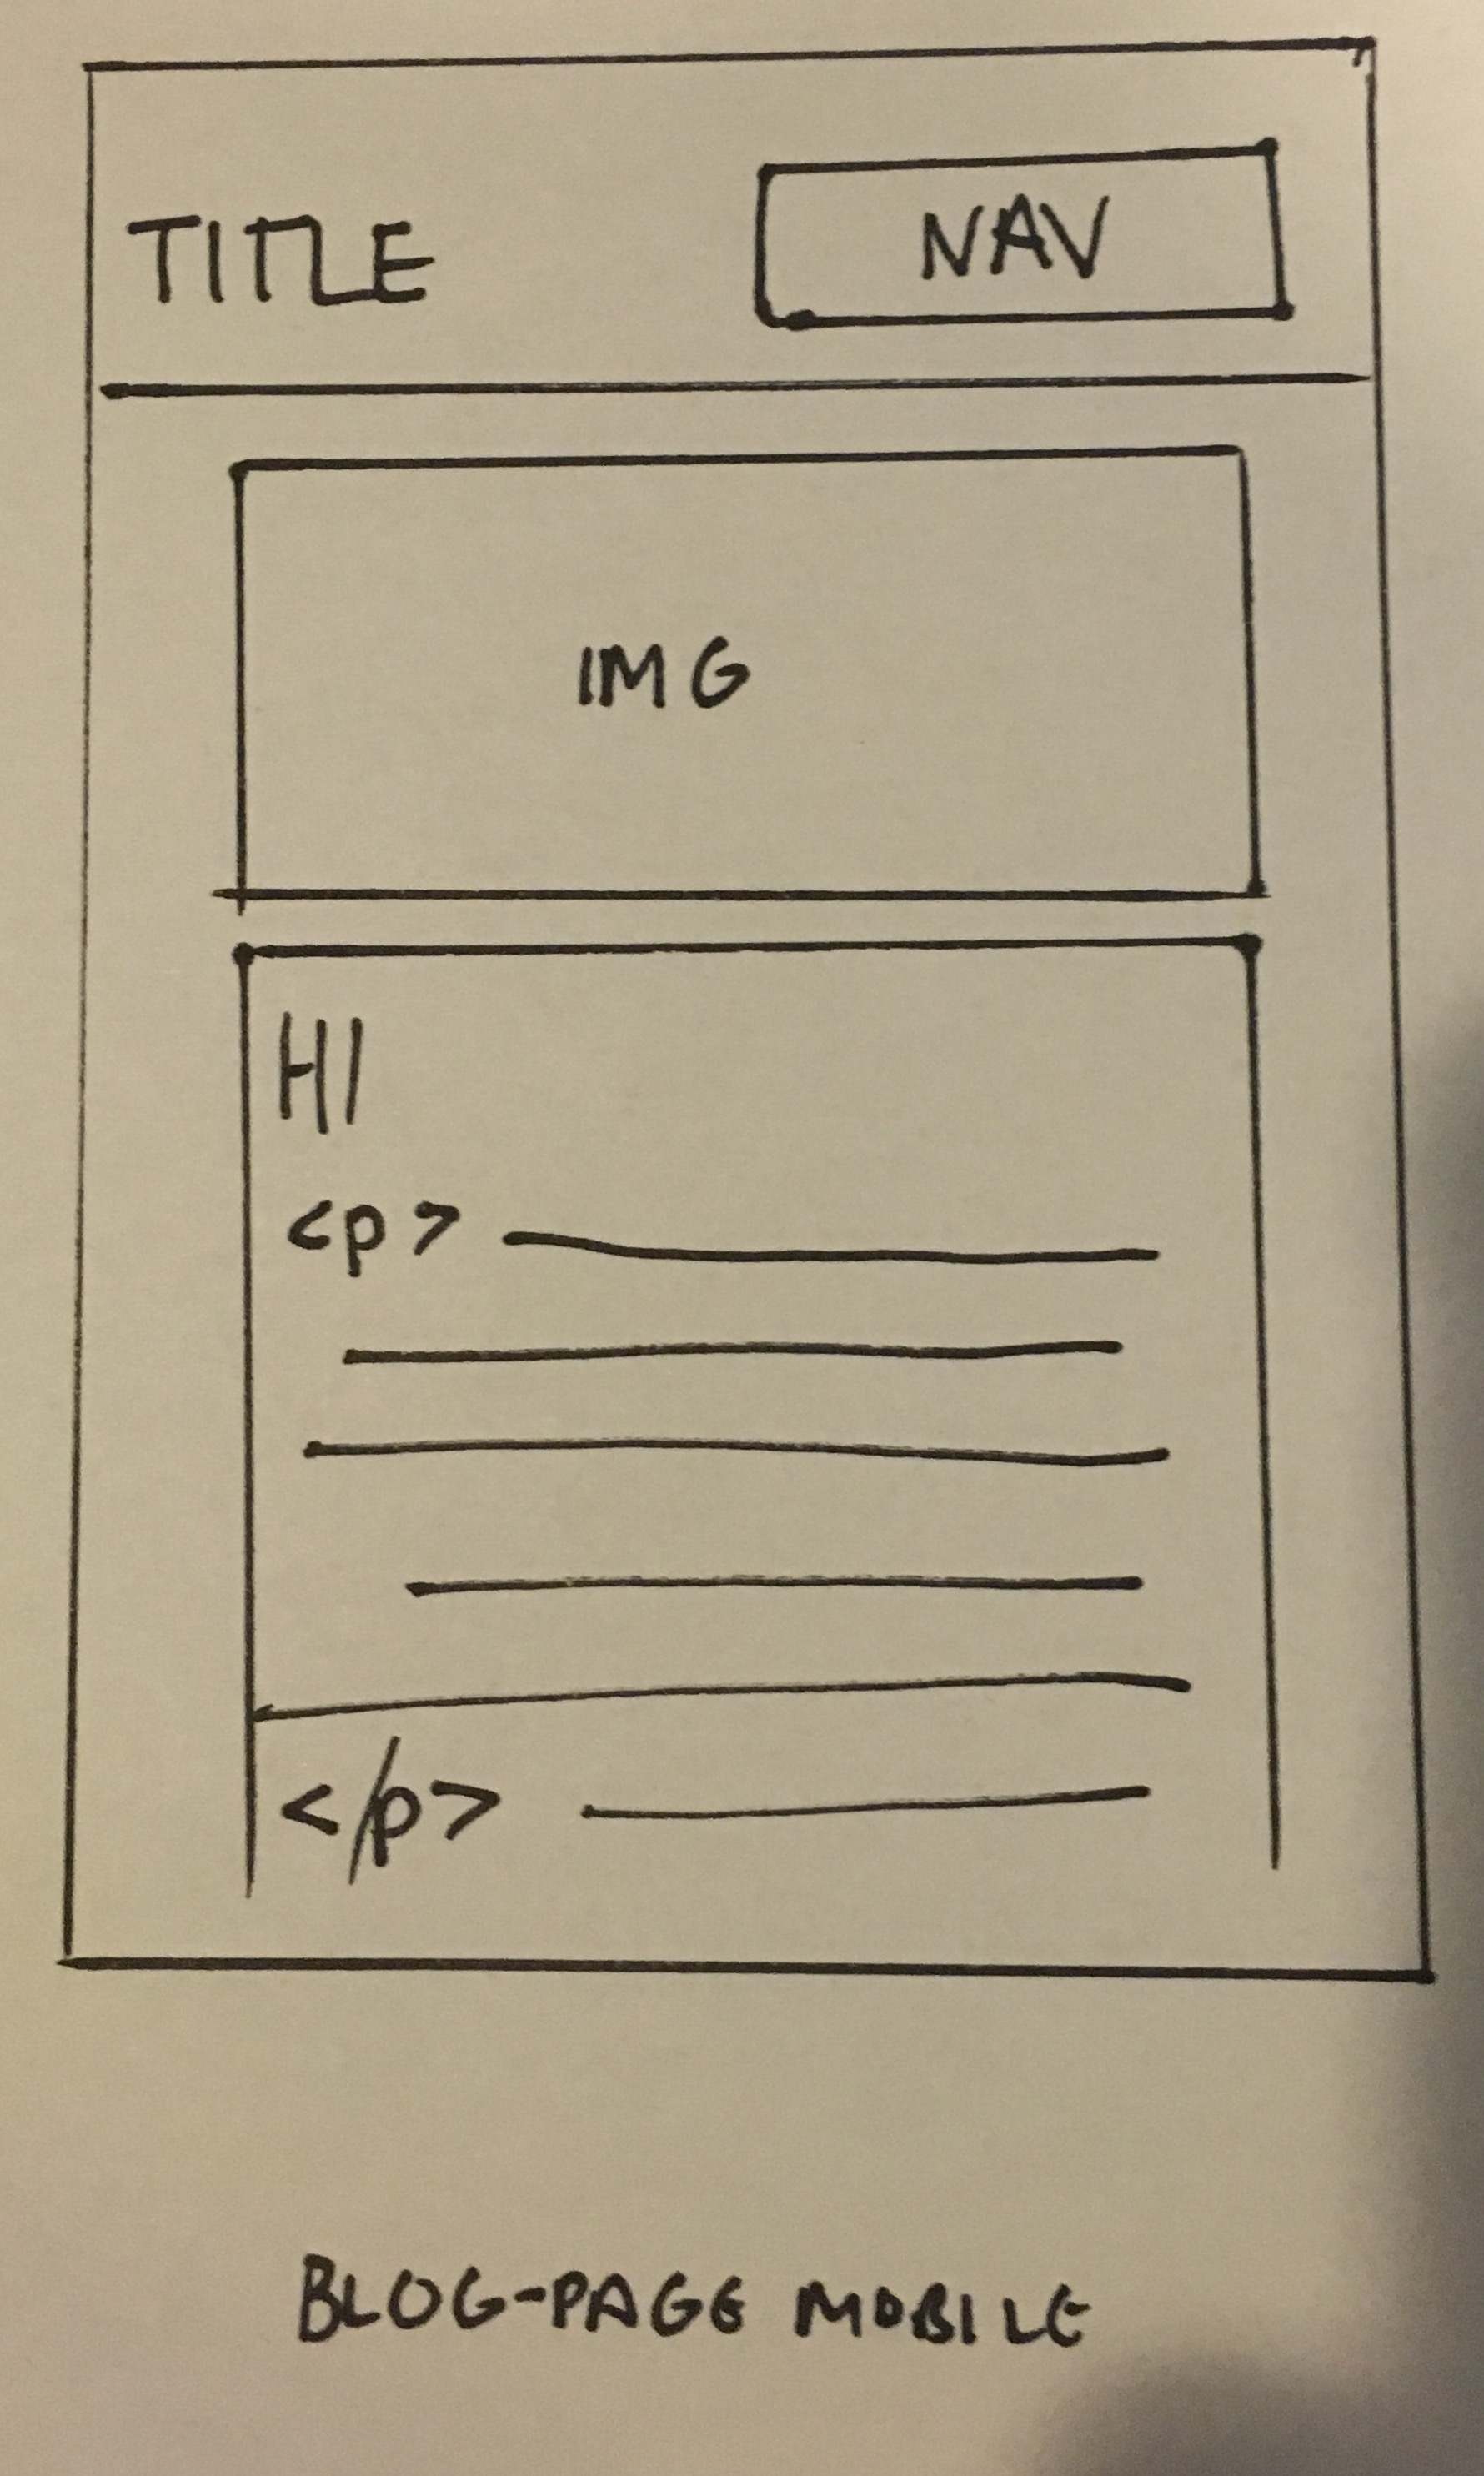 TITLE
NAV
IMG
H1
<p>
</p>
BLOG-PAGE MOBILE